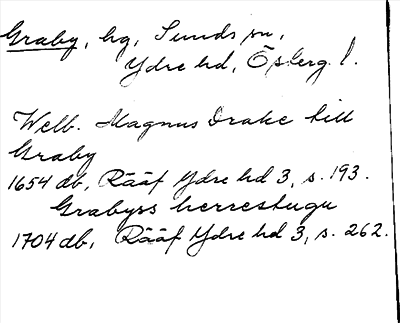 Graby, hg, Sunds sn,
Ydre hd, Österg. l.
Welb. Magnus Drake till
Graby
1654 db, Rääf Ydre hd 3, s. 193.
Grabyss herrestugu
1704 db, Rääf Ydre hd 3, s. 262.